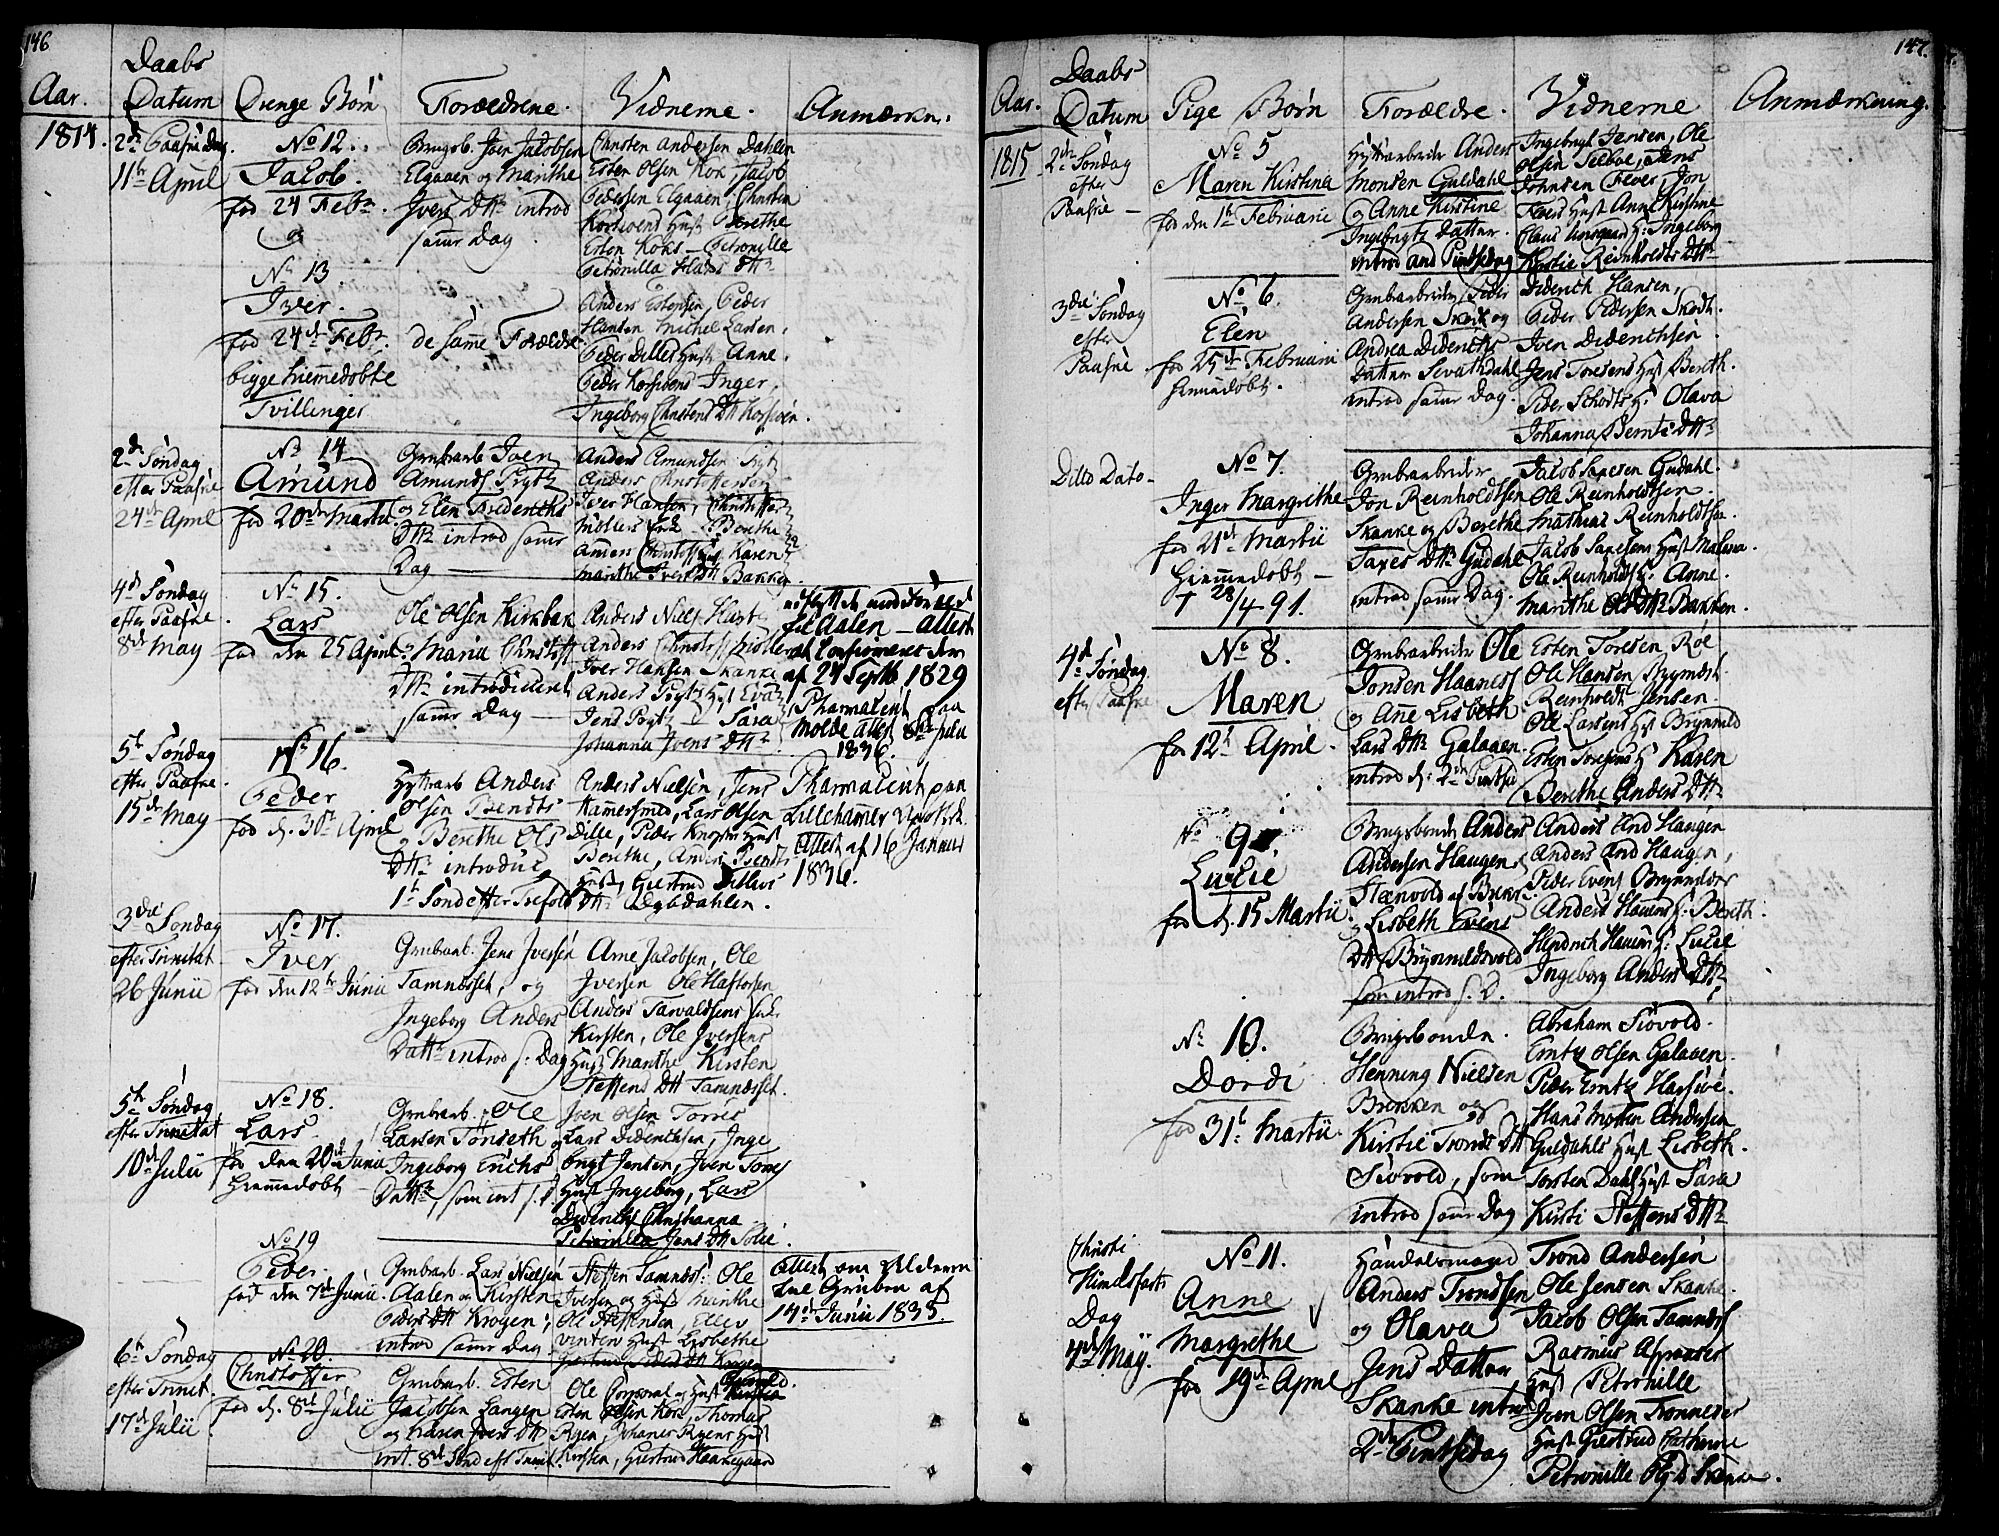 146
Aar.
Daabs
Datum
Drenge Børn
Forældrene.
Vidnerne.
Anmærkn:
1814.
2den Paaske Dag
11te April
No 12.
Jacob.
fød 24 Febr.
og
Brugsb. Joen Jacobsen
Elgaaen og Marithe
Ivers Dttr introd
samme Dag.
Christen Andersen Dahlen
Esten Olsen Kok, Jacob
Pedersen Elgaaen, Christen
Korssvens Hust Berethe
Esten Koks – Petronille
Petronilla Hans Dttr
No 13.
Iver.
fød 24de Febr.
begge hiemmedøbte
Tvillinger
de samme Forældre
Anders Estensen, Peder
Hansen, Michel Larsen,
Peder Dilles Hust Anne.
Peder Korssvens Inger,
Ingeborg Christens Dtt Korssven.
2den Søndag
efter Paaske
24de April
No 14
Amund
fød 20de Martii.
Grubearb Iven
Amunds Prytz
og Elen Friderichs
Dttr introd samme
Dag —
Anders Amundsen Prytz
Anders Christoffersen
Iver Hansen, Christopher
Møllers Enke Berethe
Anders Christoff Hust Karen
Marithe Ivers Dtt Bakken
4de Søndag
efter Paaske
8de May
No 15.
Lars
fød den 25 April
Ole Olsen Kirkbak
og Maria Christoff
Dttr introduceret
samme Dag —
Anders Niels Hust
Anders Christoff Møller
Iver Hansen Skanke
Anders Prytz H: Eva
Jens Prytz – Sara
Johanna Ivers Dttr
udflyttet med Forældr
til Aalen – Attest
at Confirmeret der
af 24 Septb 1829
Pharmaceut paa
Molde Attest 8de Julii
1836.
5te Søndag
efter Paaske
15de May
No 16.
Peder
fød d. 30te April
Hyttearb Anders
Olsen Bendts
og Berethe Ols
Dttr introduc
1te Sönd efter Trefold
Anders Nielsen, Jens
Hammersmed, Lars Olsen
Dille, Peder Knopten Hust
Berethe, Anders Bendts
Hust, Giertrud Tillers
Dttr Dybdahlen.
Pharmaceut paa
Lillehammer
Attest af 16 Januar
1836.
3die Søndag
efter Trinitat
26 Junii
No 17.
Iver
fød den 12te Junii
Grubearb. Jens Iversen
Tamnesset, og
Ingeborg Anders
Datter introd s. Dag
Arne Jacobsen, Ole
Iversen Ole Haftorsen
Anders Tarvaldsens Enke
Kirsten, Ole Iversens
Hust Marithe Kirsten
Steffens Dtt Tamnesset.
5te Søndag
efter Trinitat
10de Julii
No 18.
Lars
fød den 20de Junii
hiemmedøbt —
Grubearb. Ole
Larsen Tønseth og
Ingeborg Erichs
Datter, som int s. d
Iven Olsen Torres
Lars Diderichsen, Inge
brigt Jensen, Iven Torres
Hust Ingeborg, Lars
Diderichs Christianna
Petronilla Jens Dtt Solie.
No 19
Peder.
fød den 7de Junii.
Grubearb. Lars Nielsen
Aalen og Kirsten
Peders Dtt Krogen,
introd samme Dag
Steffen Tamnes: Ole
Iversen og Hust Marithe
Ole Steffensen, Elev
vinten Hust Lisbethe
Giertrud Peders Dtt Krogen
Attest om Alderen
til Gruben af
14de Junii 1835.
6te Søndag
efter Trinit.
17de Julii
No 20
Christoffer
fød d. 8de Julii
Grubearb. Esten
Jacobsen Langen
og Karen Ivers Dtt
int. 8de Sönd eft Trinit
Ole Corporal og Hust Kirstia
Esten Olsen Kork, Thomas
Ryen, Johanes Ryens Hust
Kirsten, Giertrud Haanegaard
147.
Aar.
Daabs
Datum
Pige Børn
Forældre.
Vidnerne
Anmærkning.
1815
2den Søndag
efter
Paaske —
No 5
Maren Kirstina
fød den 1te Februarii
Hyttearbeider Anders
Monsen Guldahl
og Anne Kirstine
Ingebrigts Datter.
introd and Pintsedag
Ingebrigt Jensen, Ole
Olsen Feeboe, Jens
Johnsen Fever, Jon
Fevers Hust Anne Kirstine
Claus Aasgaard H: Ingeborg
Kirstie Reinholdts Dttr
3die Søndag
efter
Paaske
No 6.
Elen
fød 25de Februarii
hiemmedøbt.
Grubearbeider Peder
Andersen Skott og
Andrea Diderichs
Datter Sevatdahl
introd samme Dag.
Diderich Hansen,
Peder Pedersen Skodt.
Iven Diderichsen
Jens Toresens Hust Bereth.
Peder Schodts H: Olava
Johanna Bernts Dttr
Ditto Dato –
No 7.
Inger Margrethe
fød 21de Martii
hiemmedøbt —
† 28/4 91.
Grubearbeider
Jon Reinholdtsen
Skanke og Berethe
Taxes Dttr Guldahl
introd samme Dag.
Jacob Saxesen Guldahl.
Ole Reinholdtsen
Mathias Reinholdtsen
Jacob Saxesens Hust Malena.
Ole Reinholdts H: Anne.
Marithe Ols Dttr Bakken.
4de Søndag
efter Paaske
No 8.
Maren
fød 12te April.
Grubearbeider Ole
Jonsen Haaness
og Anne Lisbeth
Lars Dttr Galaaen.
introd d. 2den Pintse
Esten Toresen Røe
Ole Hansen Rygmost.
Reinholdt Jensen
Ole Larsens Hst Brynnild
Esten Toresens H Karen
Berethe Anders Dttr
No 9.
Lucie
fød d. 15 Martii
Brugsbonde Anders
Andersen Haugen,
Steenvold af Brekk.
og Lisbeth Evens
Dtt Brynnildsvold
som introd s. D.
Anders And Haugen
Anders And Haugen,
Peder Evens Brynnildsv
Anders Haugens H: Bereth.
Hendrich Haugens H: Lucie
Ingeborg Anders Dttr
No 10.
Dordi
fød 31te Martii.
Brugsbonden.
Henning Nielsen
Brekken og
Kirstie Tronds Dtt
Siøvold, som
introd samme Dag
Abraham Siøvold.
Erntz Olsen Galaaen.
Peder Erntz Harsiøe.
Hans Morten Andersen
Guldahls Hust Lisbeth.
Torsten Dahl Hust Sara
Kirsti Steffens Dttr
Christi
Himelsfarts
Dag
4de May.
No 11.
Anne
Margrethe
fød 19de April
Handelsmand
Anders Trondsen
og Olava
Jens Datter
Skanke introd
2den Pintsedag
Trond Andersen
Ole Jensen Skanke.
Jacob Olsen Tamnes
Rasmus Asprøeser
Hust Petronille
Iven Olsen Tronnesser
Hust Giertrud Cathrine
Petronille Ols D Skanke.